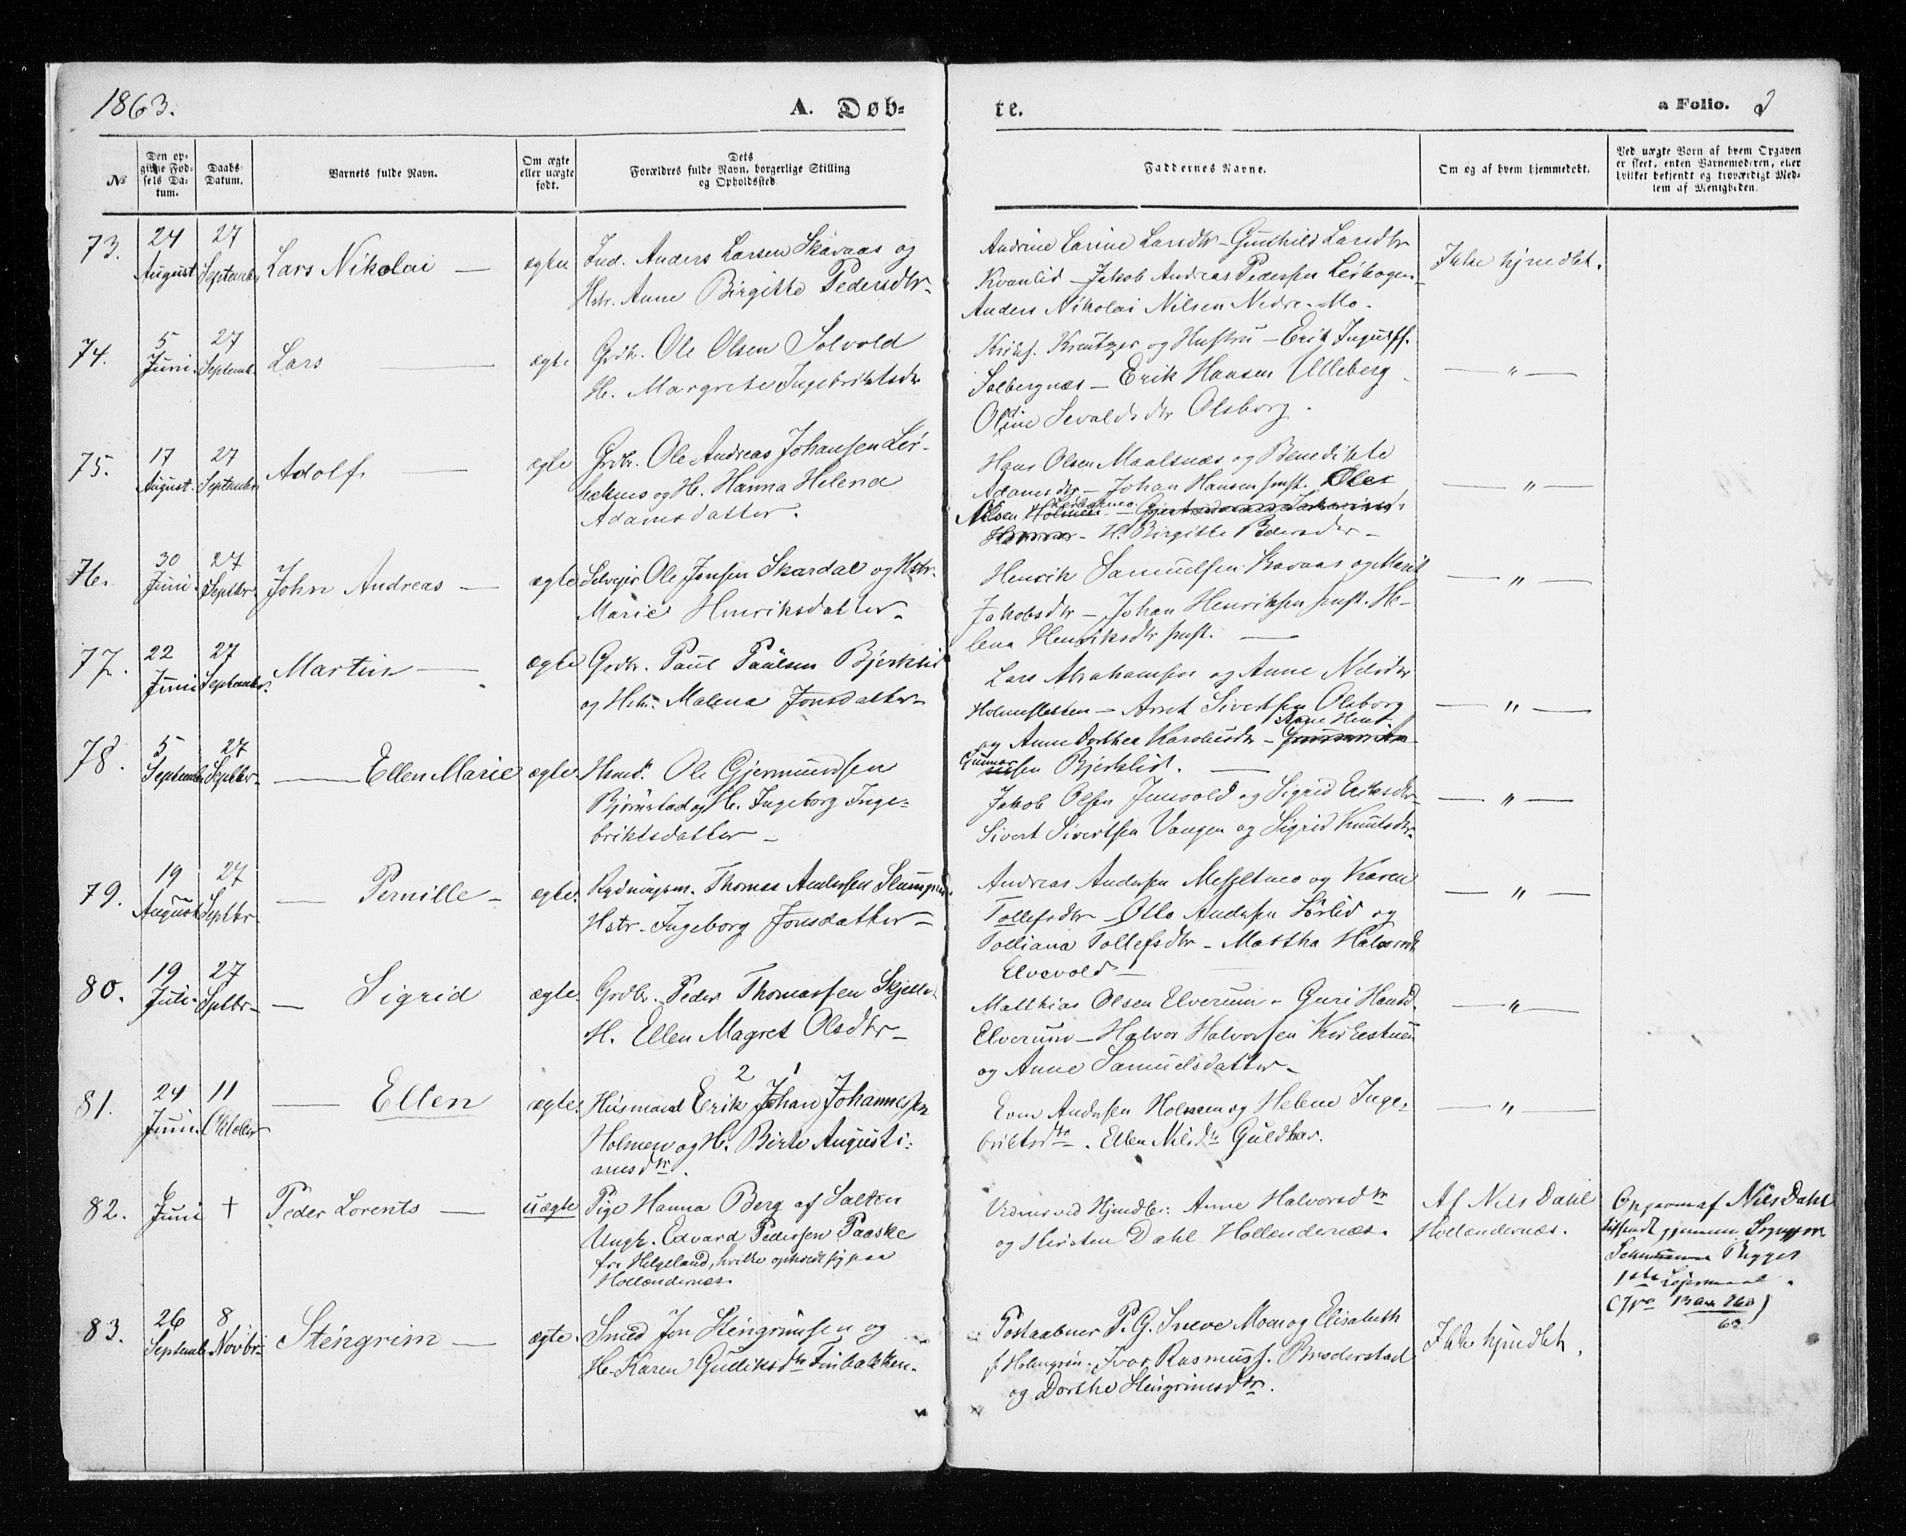 1863.
A. Døb-
te.
a Folio. 2
No
Den op-
givne Fød-
sels Da-
tum.
Daabs-
Datum.
Barnets fulde Navn.
Om ægte
eller uægte
født.
Dets
Forældres fulde Navn, borgerlige Stilling
og Opholdssted.
Faddernes Navne.
Om og af hvem hjemmedøbt.
Ved uægte Børn af hvem Opgaven
er skeet, enten Barnemoderen, eller
hvilket bekjendt og troværdigt Med-
lem af Menigheden.
73.
24
August
27
September
Lars Nikolai —
ægte
Ind. Anders Larsen Skavaas og
Hstr. Anne Birgitte Pedersdtr.
Andrine Larine Larsdtr – Gunhild Larsdtr
Kvanlid – Jakob Andreas Pedersen Lerhogen
Anders Nikolai Nilsen Nedre-Mo.
Ikke hjmedbt.
74.
5
Juni.
27
Septemb.
Lars —
ægte
Grdbr. Ole Olsen Solvold
H. Margrete Ingebriktsdr
Kirks. Kreutzer og Hustru – Erik Ingusfs.
Solbergnæs – Erik Hansen Ulleberg
Oline Sevaldsdtr Olsborg.
— " —
75.
17
August.
27
September
Adolf. —
ægte
Grdbr. Ole Andreas Johansen Ler-
bekmo og H. Hanna Helena
Adamsdatter.
Hans Olsen Maalsnæs og Benedikte
Adamsdtr – Johan Hansen smst. Oles
Nilsen Holmen
– H. Birgitte Pedersdtr –
— " —
76.
30
Juni.
27
Septbr.
John Andreas —
ægte
Selveier Ole Jonsen Skardal og Hstr.
Marie Henriksdatter –
Henrik Samuelsen Kavaas og Marit
Jakobsdtr – Johan Henriksen smst. He-
lena Henriksdtr smst. —
— " —
77.
22
Juni
27
September.
Martin —
ægte
Grdbr. Paul Paulsen Bjerklid
og Hstr. Malena Jonsdatter –
Lars Abrahamsen og Anne Nilsdtr
Holmesletten – Arnt Sivertsen Olsborg
og Anne Dorthea Karolusdtr –
Gunnar
Bjerklid. —
— " —
78.
5
September
27
Septbr.
— Ellen Marie
ægte.
Hsmd. Ole Gjermundsen
Bjørnstad og H. Ingeborg Inge-
briktsdatter –
Jakob Olsen Jensvold og Sigrid Eriksdtr –
Sivert Sivertsen Vangen og Sigrid Knutsdtr.
— " —
79.
19
August
27
Septbr.
— Pernille –
ægte.
Rydningsm. Thomas Andersen
Hstr. Ingeborg Jonsdatter –
Andreas Andersen Messeltmo og Karen
Tollefsdtr – Otto Andersen Sørlid og
Tolliana Tollefsdtr – Martha Halvorsdt
Elvevold –
— " —
80.
19
Juli
27
Sptbr.
— Sigrid
ægte.
Grdbr. Peder Thomassen
H. Ellen Magret Olsdtr –
Matthias Olsen Elverum – Guri Hansd.
Elverum – Halvor Halvorsen Kirkestuen
og Anne Samuelsdatter –
— " —
81.
24
Juni.
11
Oktober
— Ellen
ægte.
2 1
Husmand Erik Johan Johannessen
Holmen og H. Birte Augusti-
nusdtr.
Even Andersen Holmen og Helene Inge-
briktsdtr. Ellen Nilsdtr Guldhav.
— " —
82.
6
Juni
+
Peder Lorents —
uægte
Pige Hanna Berg af Salten
Ungk. Edvard Pedersen Paaske
fra Helgeland, hvilke opholdt sig paa
Hollændernæs.
Vidner ved Hjmdb: Anne Halvorsdtr
og Kirsten Dahl Hollændernæs.
Af Nils Dahl
Hollændernæs.
Opgaven af Nils Dahl
tilsendt gjennem Sogneprest
1ste Leiermaal.
83.
26
Septemb.
8
Novbr.
Stengrim —
ægte.
Smed Jon Stengrimsen og
H. Karen Gulliksdtr Finbakken.
Postaabner P. G. Sneve Moen og Elisabeth
f. Holmgrén. Ivar Rasmuss. Broderstad
og Dorthe Stengrimsdtr.
Ikke hjmdbt.